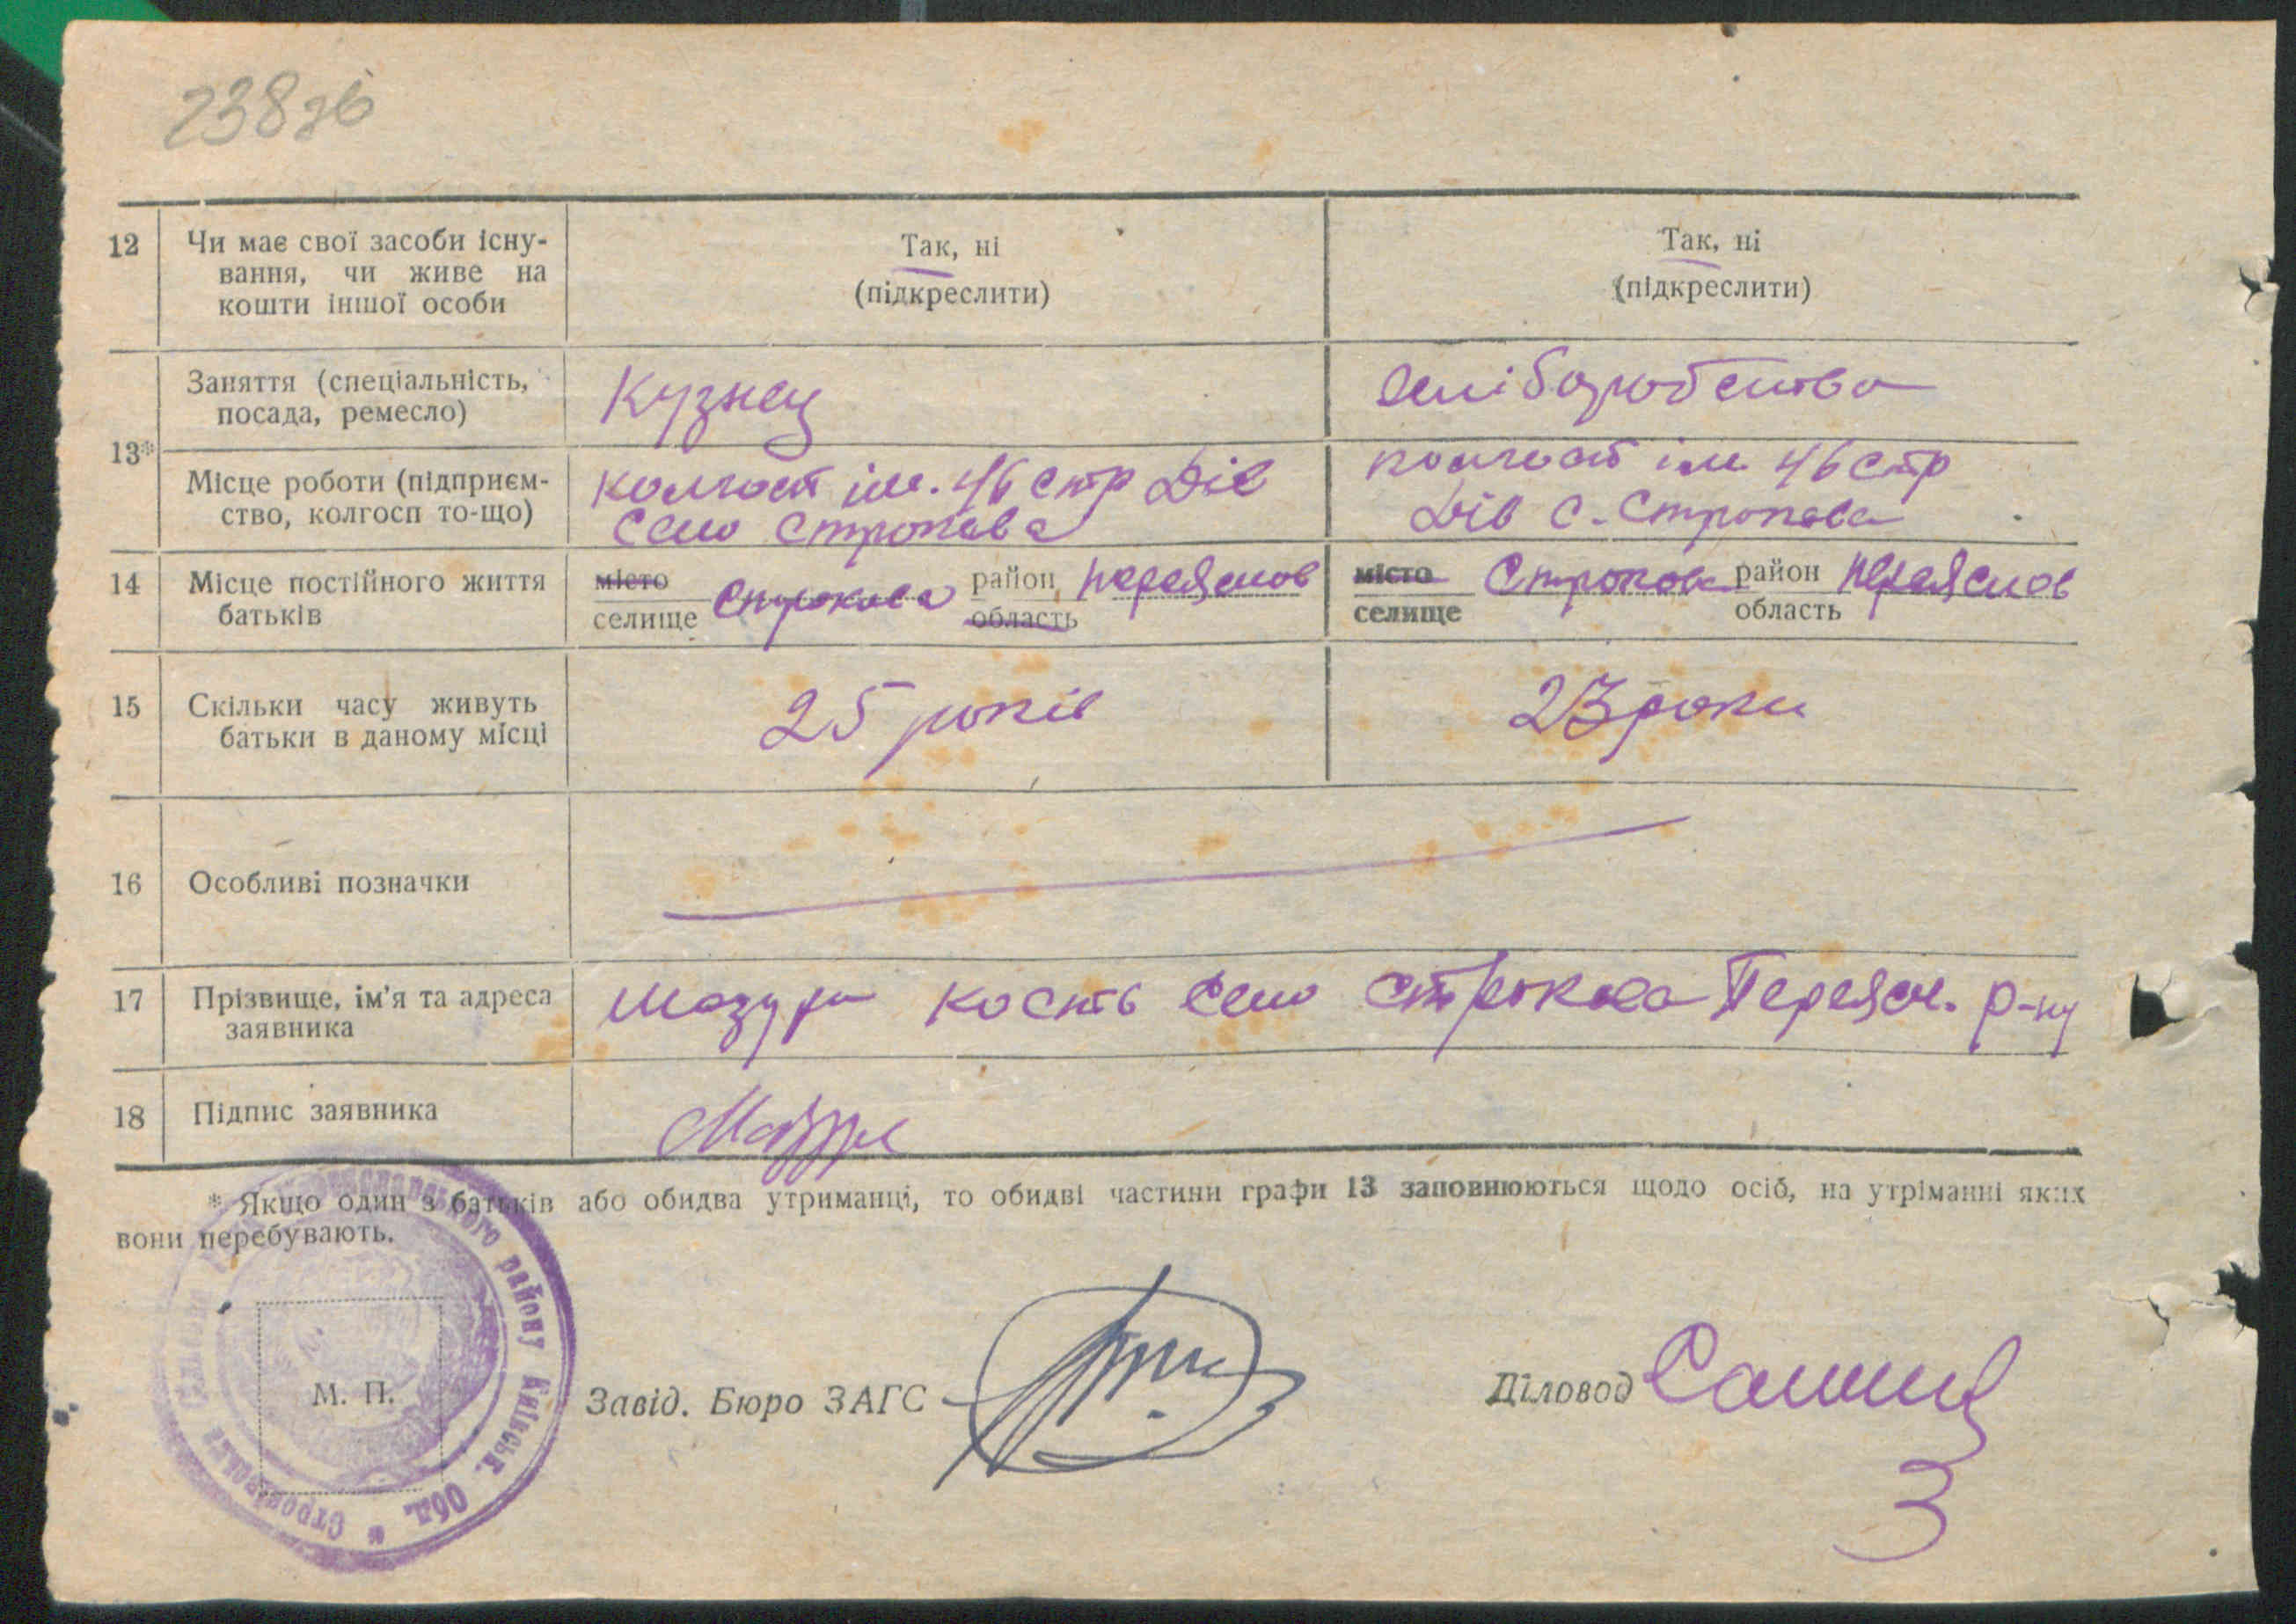 238 зв
12 Чи має свої засоби існу-
вання, чи живе на
кошти іншої особи
Так, ні
(підкреслити)
Так, ні
(підкреслити)
13*
Заняття (спеціальність,
посада, ремесло)
Кузнец
хліборобство
Місце роботи (підприєм-
ство, колгосп то-що)
колгосп ім. 46 стр Дів
село Строкова
колгосп ім 46 стр
Дів с. Строкова
14 Місце постійного життя
батьків
місто
селище
Строкова
район
область
Переяслов
місто
селище
Строкова
район
область
Переяслов
15 Скільки часу живуть
батьки в даному місці
25 років
23 роки
16 Особливі позначки
17 Прізвище, ім'я та адреса
заявника
Мазура Кость село Строкова Переясл. р-ну
18 Підпис заявника
Мазура
* Якщо один з батьків або обидва утриманці, то обидві частини графи 13 заповнюються щодо осіб, на утріманні яких
вони перебувають.
М. П.
району Київськ. Обл. * Строківська
Завід. Бюро ЗАГС
Діловод
3